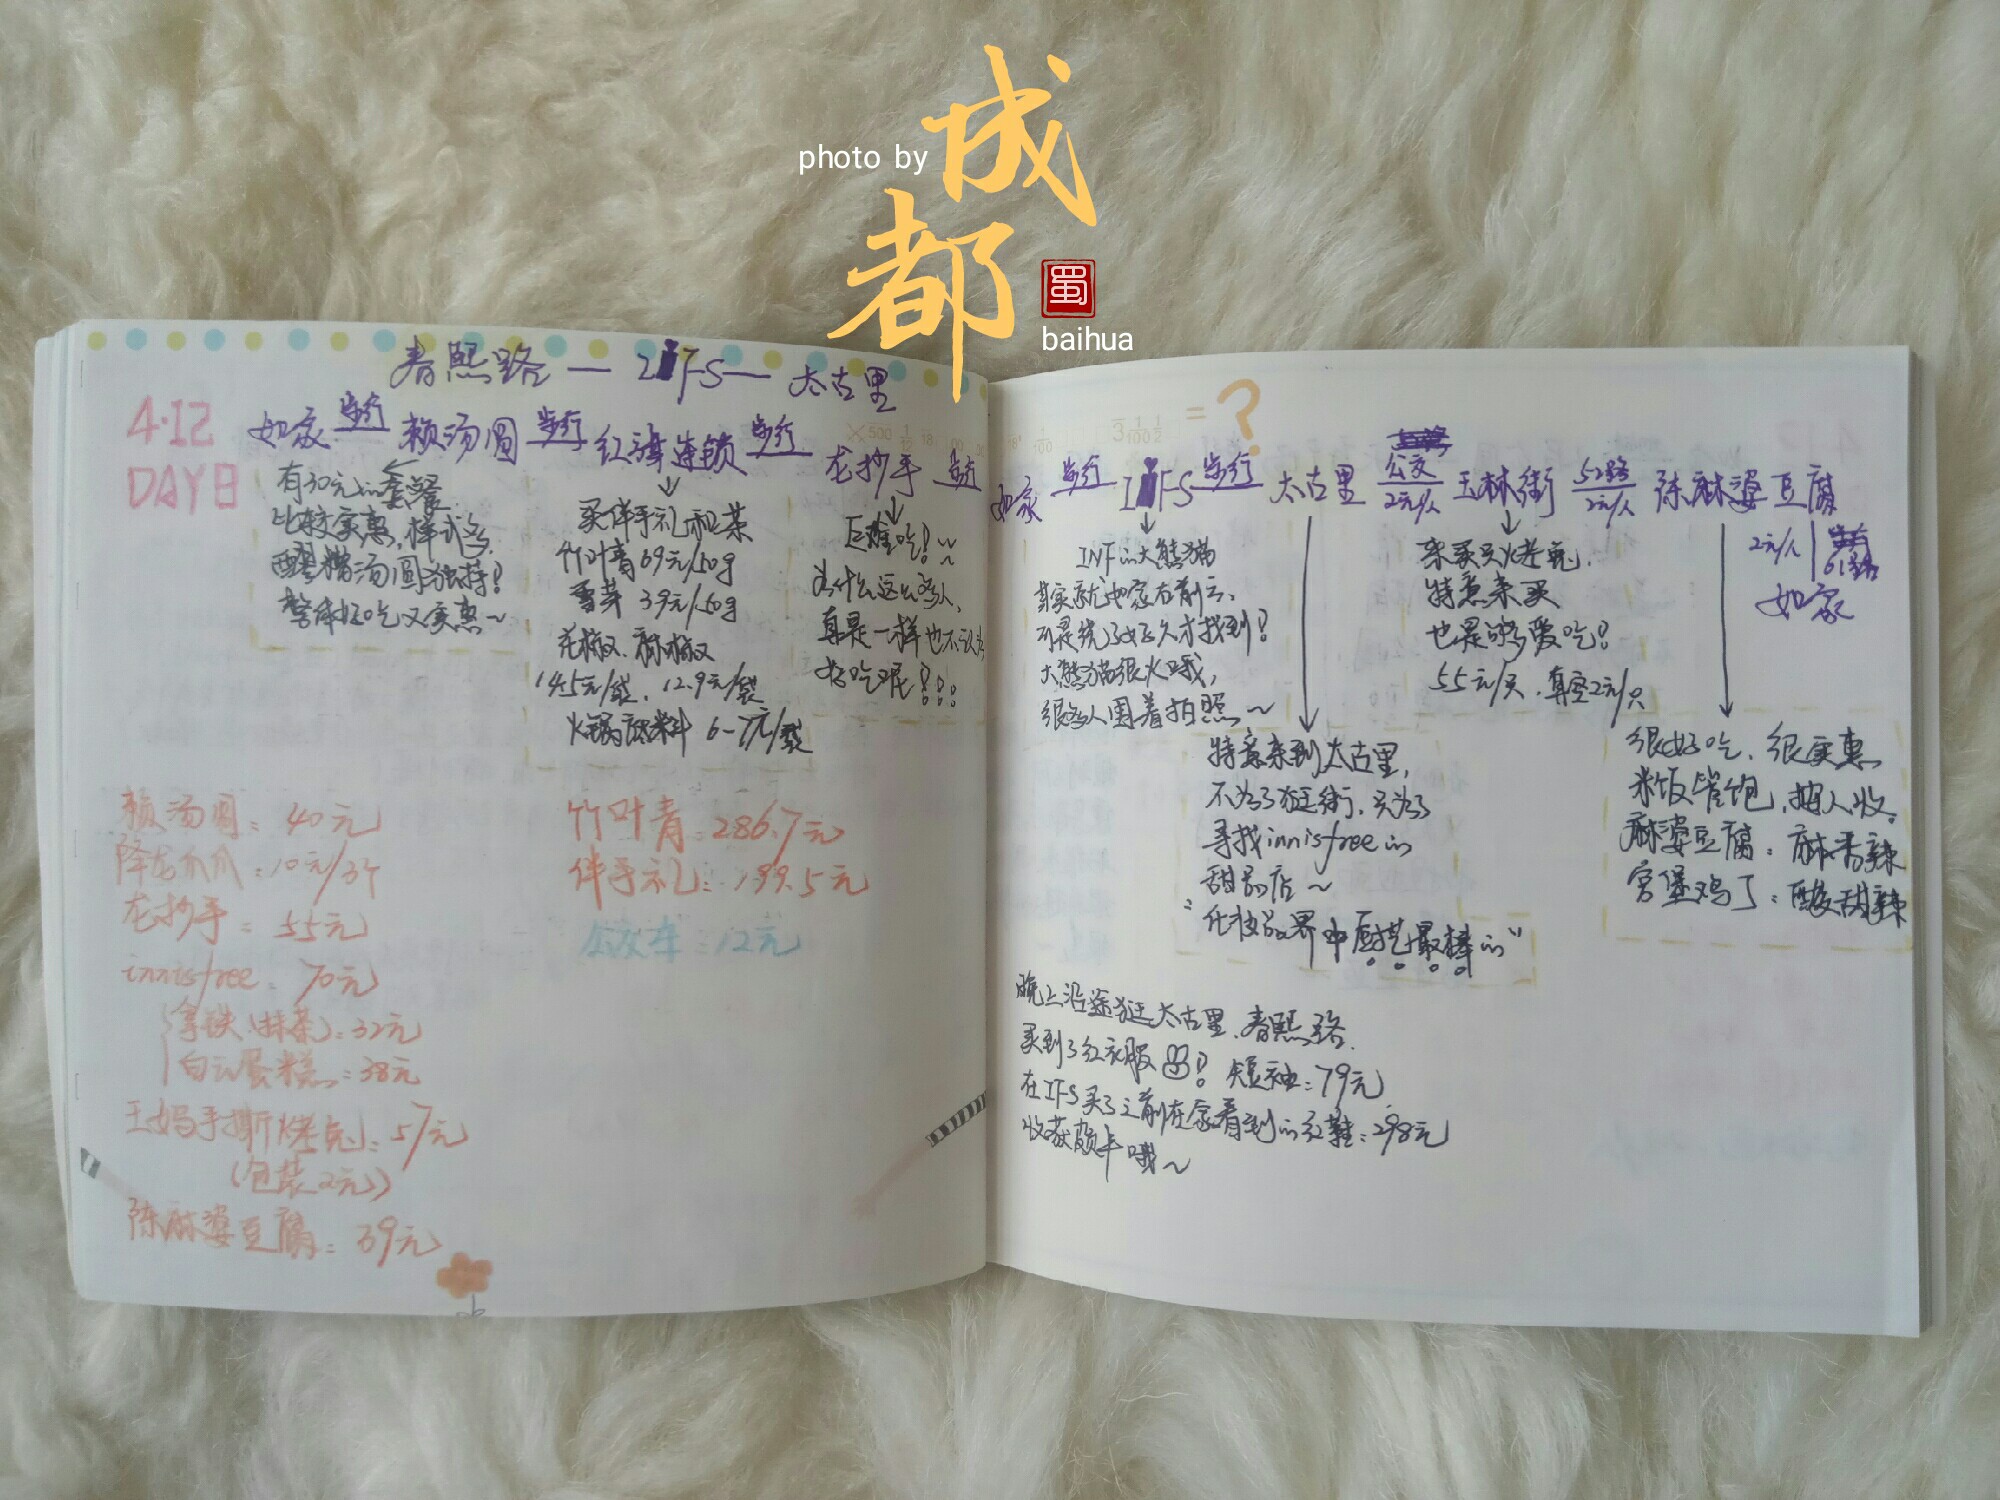 photo by
成都
蜀
baihua
春熙路—IFS—太古里
4.12
DAY日
如家 步行 赖汤圆 步行 红旗连锁 步行 龙抄手 步行
有30元的套餐
比较实惠,样式多,
醪糟汤圆独特!
整体好吃又实惠~
买伴手礼和茶
竹叶青 69元/50g
雪芽 39元/50g
花椒、麻椒
14.5元/袋、12.9元/袋
火锅底料 6-7元/袋
巨难吃!~~
为什么这么多人,
真是一样也不认为
好吃呢!
赖汤圆: 40元
降龙爪爪:10元/3个
龙抄手: 55元
innisfree: 70元
拿铁(抹茶):32元
白云蛋糕:38元
王妈手撕烤兔:57元
(包装2元)
陈麻婆豆腐: 39元
竹叶青:286.7元
伴手礼:199.5元
公交车:12元
=?
如家 步行 IFS 步行 太古里 公交 2元/人 玉林街 52路 2元/人 陈麻婆豆腐
2元/人 61路
如家
INF的大熊猫
其实就如家在前云、
可是绕了好久才找到!
大熊猫很火哦,
很多人围着拍照~
特意来到太古里,
不为了逛街,只为了
寻找innisfree的
甜品店~
"化妆品界中厨艺最棒的"
来买只烤兔,
特意来买
也是够爱吃!
55元/只、真空2元/只
很好吃、很实惠
米饭管饱,按人收。
麻婆豆腐:麻香辣
宫保鸡丁:酸甜辣
晚上沿途逛太古里、春熙路,
买到了红衣服! 短袖:79元
在IFS买了之前在家看到的红鞋:298元
收获颇丰哦~